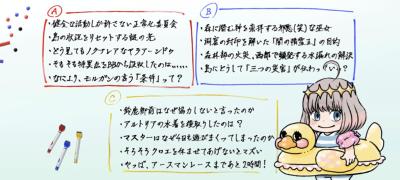 A
・健全な活動しか許さない正常化委員会
・島の水江をリセットする銃の光
・どう見てもノクナレアなヤラアーンドゥ
・そもそも特異点をBBから奪取したのは……
・なにより、モルガンの言う「条件」って?
B
・森に潜む幹を崇拝する邪悪(笑)な巫女
・洞窟の封印を解いた「闇の精霊王」の目的
・森林部の火災、西部で頻発する水漏れの解決
・島にとって「三つの災害」が伝わっ
C
・鈴鹿御前はなぜ協しないと言ったのか
・アルトリアの水着を横取りしたのは?
・マスターはなぜ4日も遊がまくってしまったのか
・そろそろクロエを休ませてあげないとマズい
・やっば、アースマンレースまであと2時間!